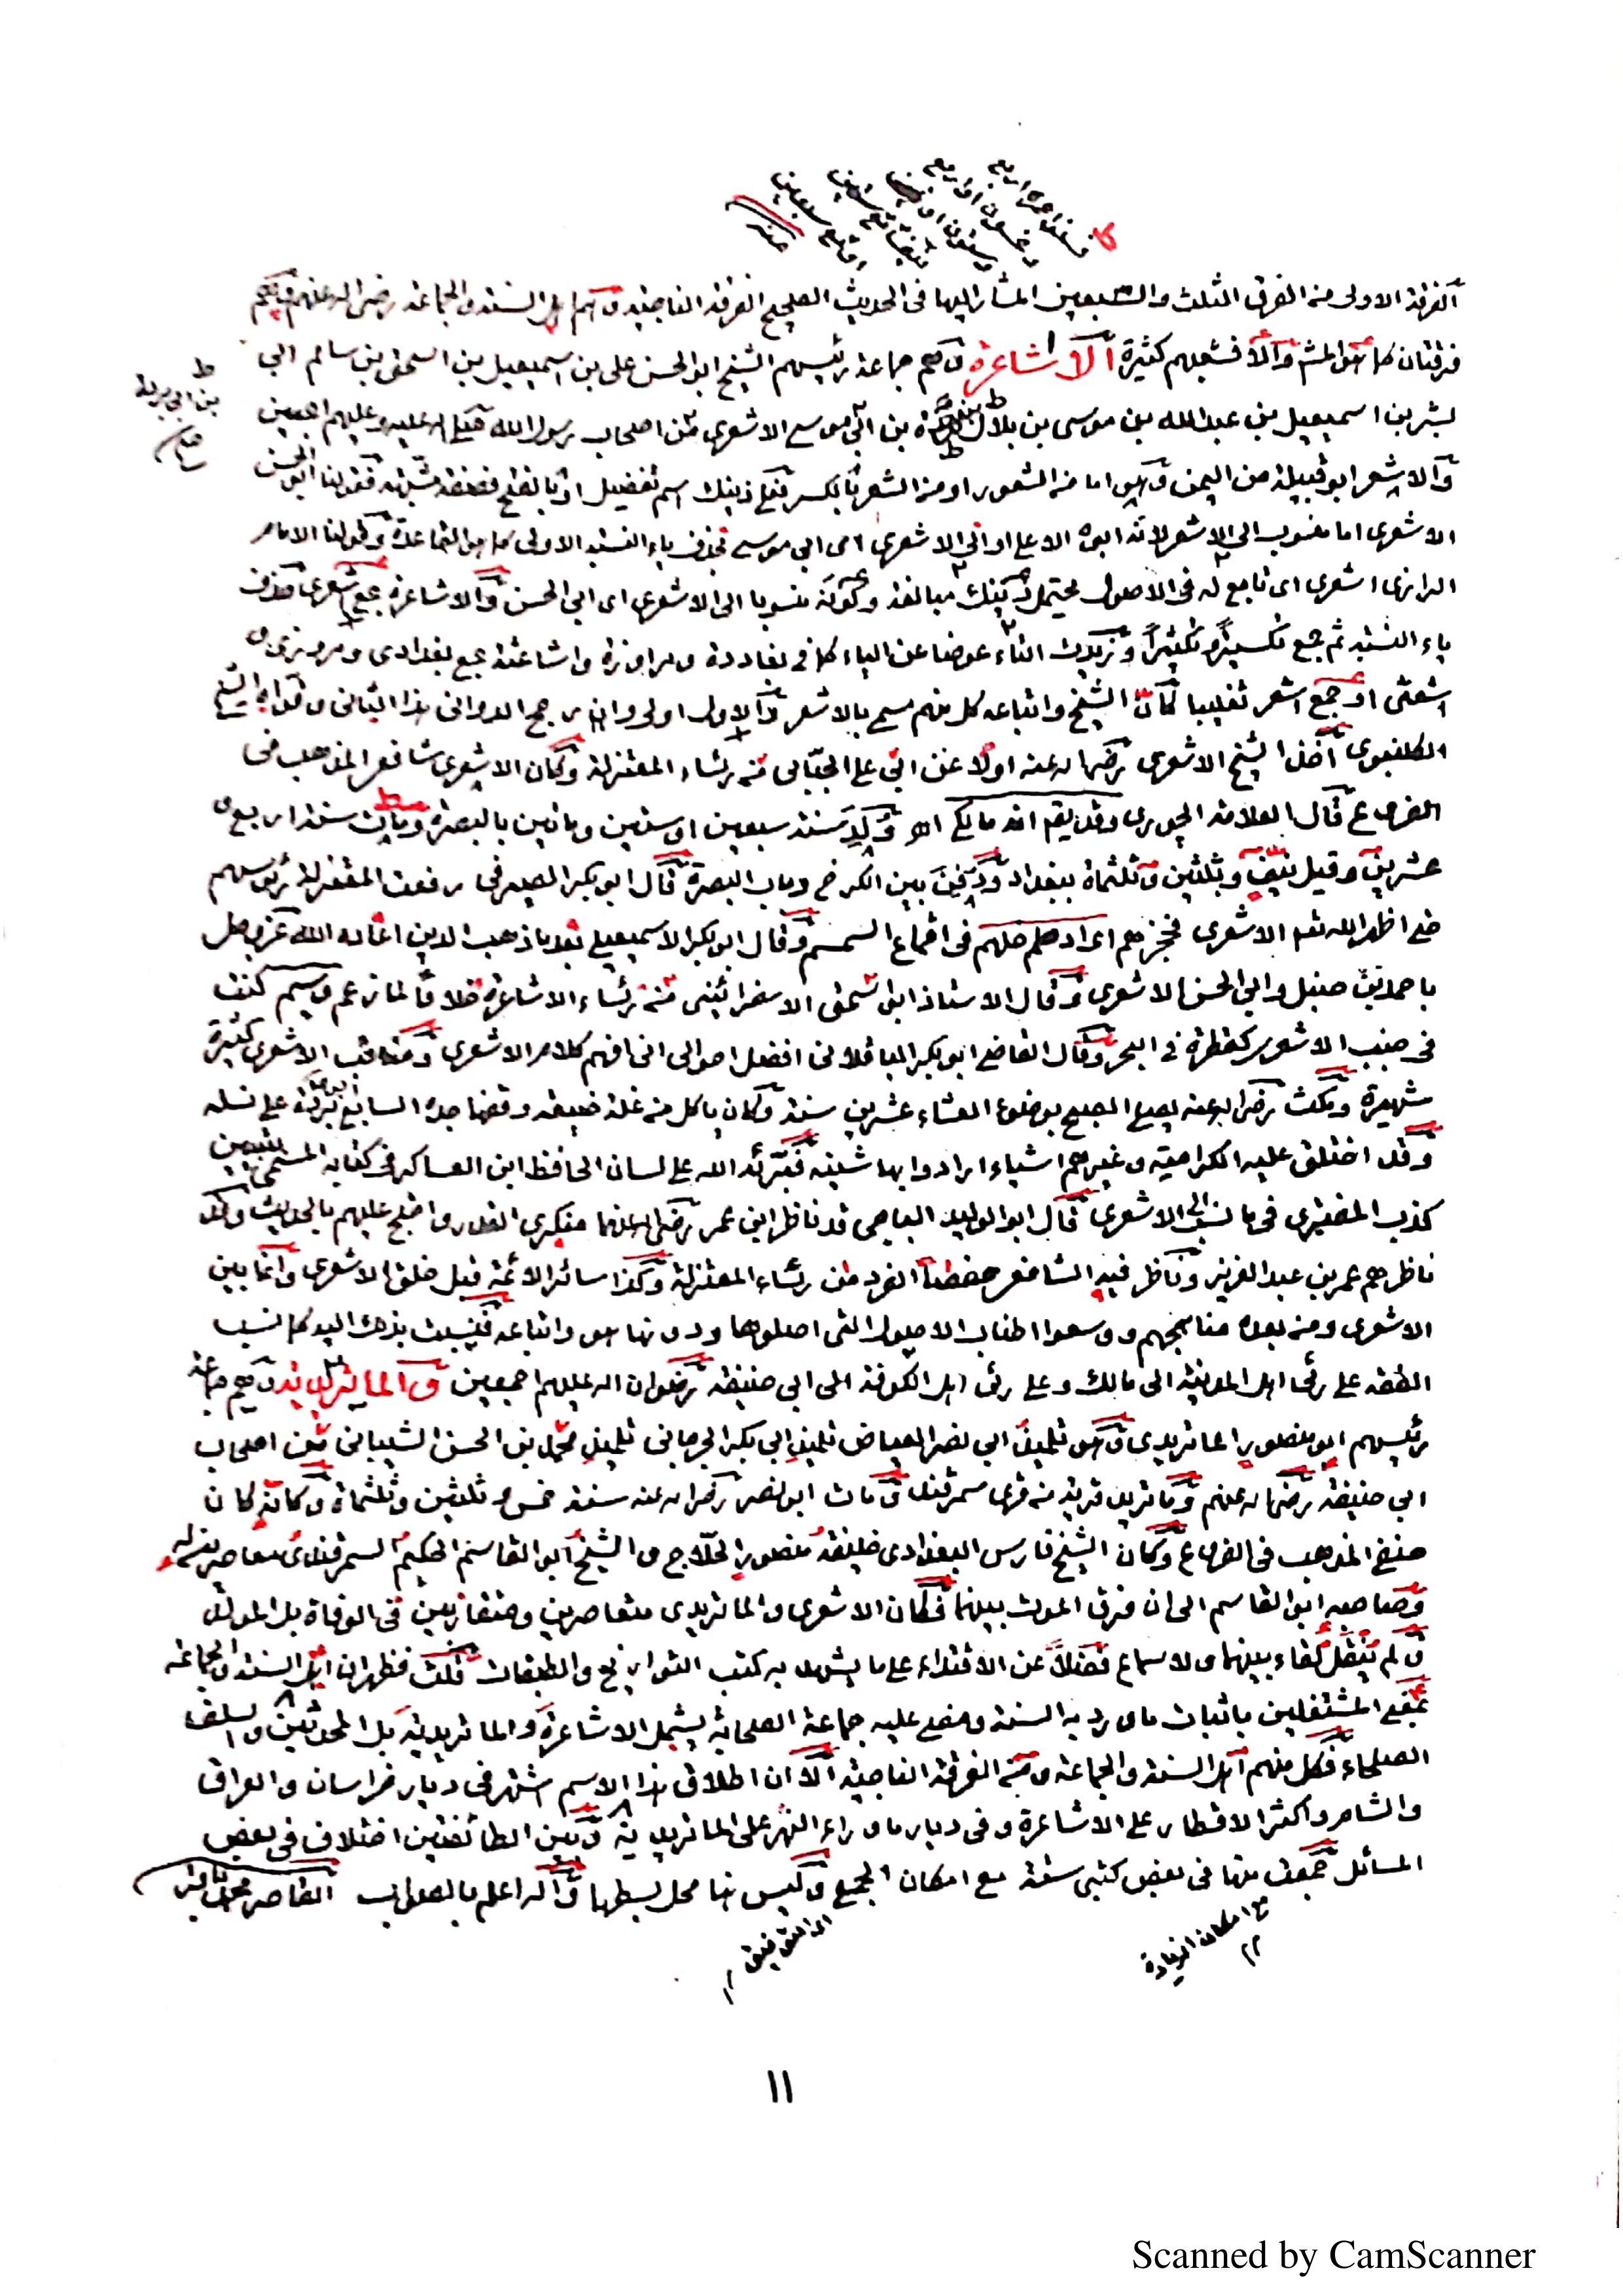 الفرقة الاولى من الفرق الثلث والسبعين المشار اليها فى الحديث الصحيح الفرقة الناجية وهم اهل السنة والجماعة رضى اله عنهم
فرقتان كما هو المش والا فشعبهم كثيرة الاشاعرة وهم جماعة رئيسهم الشيخ ابو الحسن على بن اسمعيل بن اسحق بن سالم ابى
بشر بن اسمعيل بن عبد الله بن موسى بن بلال بن ابى موسى الاشعرى من اصحاب رسول الله صلى اله عليه وعليهم اجمعين
بن ابى بردة
والاشعر ابو قبيلة من اليمن وهو اما من الشعور او من الشعر بالكسر فعلى ذينك اسم تفضيل او بالفتح فصفة مشبهة فقولنا ابو الحسن
الاشعرى اما منسوب الى الاشعر لانه ابوه الاعلى او الى الاشعرى اى ابى موسى بحذف ياء النسبة الاولى كما هو القاعدة وقولنا الامام
الرازى اشعرى اى تابع له فى الاصول يحتمل ذينك مبالغة وكونه منسوبا الى الاشعرى اى ابى الحسن والاشاعرة جمع اشعرى بحذف
ياء النسبة ثم جمع تكسيرا وتزيدت التاء عوضا عن الياء كما فى بغاددة ومراوزة واشاعثة جمع بغدادى ومروزى و
اشعثى او جمع اشعر تغليبا كان الشيخ واتباعه كل منهم سمى بالاشعر والاول اولى وان رجح الدوانى هذا الثانى
الكلنبوى اخذ الشيخ الاشعرى رضى اله عنه اولا عن ابى على الجبائى من رئساء المعتزلة وكان الاشعرى شافعى المذهب فى
الفروع قال العلامة الجورى وقد يقع انه مالكى اهـ ولد سنة سبعين او ستين ومائتين بالبصرة ومات سنة اربع و
عشرين وقيل نيف وثلثين وثلثمائة ببغداد ودفن بين الكرخ وباب البصرة قال ابو بكر الصيرفى رفعت المعتزلة رئوسهم
حتى اظهر الله تعالى الاشعرى فحجزهم اى ادخلهم فى اقماع السمسم وقال ابو بكر الاسمعيلى بعد ما ذهب الدين اعاده الله عز وجل
باحمد بن حنبل وابى الحسن الاشعرى وقال الاستاذ ابو اسحق الاسفرائينى من رئساء الاشاعرة كنت
فى جنب الاشعرى كقطرة فى البحر وقال القاضى ابو بكر الباقلانى افضل احوالى انى افهم كلام الاشعرى ومناقب الاشعرى كثيرة
شهيرة ومكث رضى اله عنه يصلى الصبح بوضوء العشاء عشرين سنة وكان ياكل من غلة ضيعة وقفها جده السابع على نسله
وقد اختلق عليه الكرامية وغيرهم اشياء ارادوا بها شينه فبرئه الله على لسان الحافظ ابن العساكر فى كتابه المسمى بتبيين
كذب المفترى فى ما نسب الى الاشعرى قال ابو الوليد الباجى قد ناظر ابن عمر رضى اله عنهما منكرى القدر واحتج عليهم بالحديث وكذا
ناظرهم عمر بن عبد العزيز وناظر فيه الشافعى حفصا الفرد من رئساء المعتزلة وكذا سائر الائمة قبل خلق الاشعرى وانما بين
الاشعرى ومن بعده مناهجهم ووسعوا اطناب الاصول التى اصلوها ودونها هو واتباعه فنسبت بذلك اليه كما نسب
الفقه على رئى اهل المدينة الى مالك وعلى رئى اهل الكوفة الى ابى حنيفة رضوان اله عليهم اجمعين والماتريدية وهم جماعة
رئيسهم ابو منصور الماتريدى وهو تلميذ ابى نصر العياض تلميذ ابى بكر الجرجانى تلميذ محمد بن الحسن الشيبانى من اصحاب
ابى حنيفة رضى اله عنهم وماتريد قرية من قرى سمرقند ومات ابو نصر رضى اله عنه سنة خمس وثلثين وثلثمائة وكان
حنفى المذهب فى الفروع وكان الشيخ فارس البغدادى خليفة منصور الحلاج والشيخ ابو القاسم الحكيم السمرقندى معاصرين له
وصاحبه ابو القاسم الى ان فرق الموت بينهما فكان الاشعرى والماتريدى متعاصرين ومتقاربين فى الوفاة بل المولد
ولم ينقل لقاء بينهما ولا سماع فضلا عن الاقتداء على ما يشهد به كتب التواريخ والطبقات قلت فظهر ان اهل السنة والجماعة
بمعنى المشتغلين باثبات ما ورد به السنة ومضى عليه جماعة الصحابة يشمل الاشاعرة والماتريدية بل المحدثين والسلف
الصلحاء فكل منهم اهل السنة والجماعة ومن الفرقة الناجية الا ان اطلاق هذا الاسم اشتهر فى ديار خراسان والعراق
والشام واكثر الاقطار على الاشاعرة وفى ديار ما وراء النهر على الماتريدية وبين الطائفتين اختلاف فى بعض
المسائل جمعت منها فى بعض كتبى ستة مع امكان الجمع وليس هنا محل بسطها واله اعلم بالصواب القاصر محمد باقر
مع امكان الزيادة
١١
Scanned by CamScanner